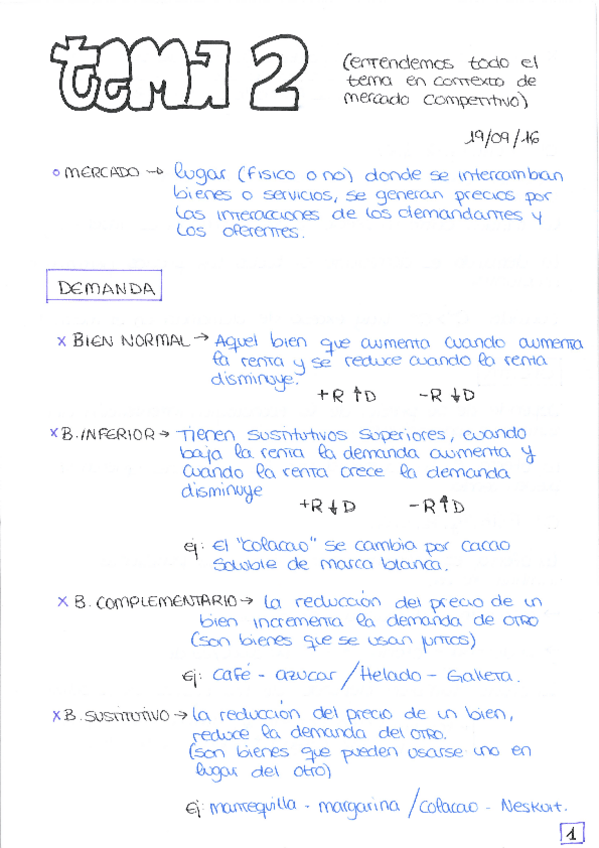 tema 2
(entendemos todo el
tema en contexto de
mercado competitivo)
19/09/16
o MERCADO → lugar (físico o no) donde se intercambian
bienes o servicios, se generan precios por
las interacciones de los demandantes y
los oferentes.
DEMANDA
x BIEN NORMAL → Aquel bien que aumenta cuando aumenta
la renta y se reduce cuando la renta
disminuye.
+R ↑D -R ↓D
x B. INFERIOR → Tienen sustitutivos superiores, cuando
baja la renta la demanda aumenta y
cuando la renta crece la demanda
disminuye
+R ↓D -R ↑D
ej: El "Colacao" se cambia por cacao
soluble de marca blanca.
x B. COMPLEMENTARIO → la reducción del precio de un
bien incrementa la demanda de OTRO
(son bienes que se usan juntos)
Ej: Café - azucar / Helado - Galleta.
x B. SUSTITUTIVO → la reducción del precio de un bien,
reduce la demanda del OTRO.
(son bienes que pueden usarse uno en
lugar del otro)
ej: mantequilla - margarina / Colacao - Neskuit.
1